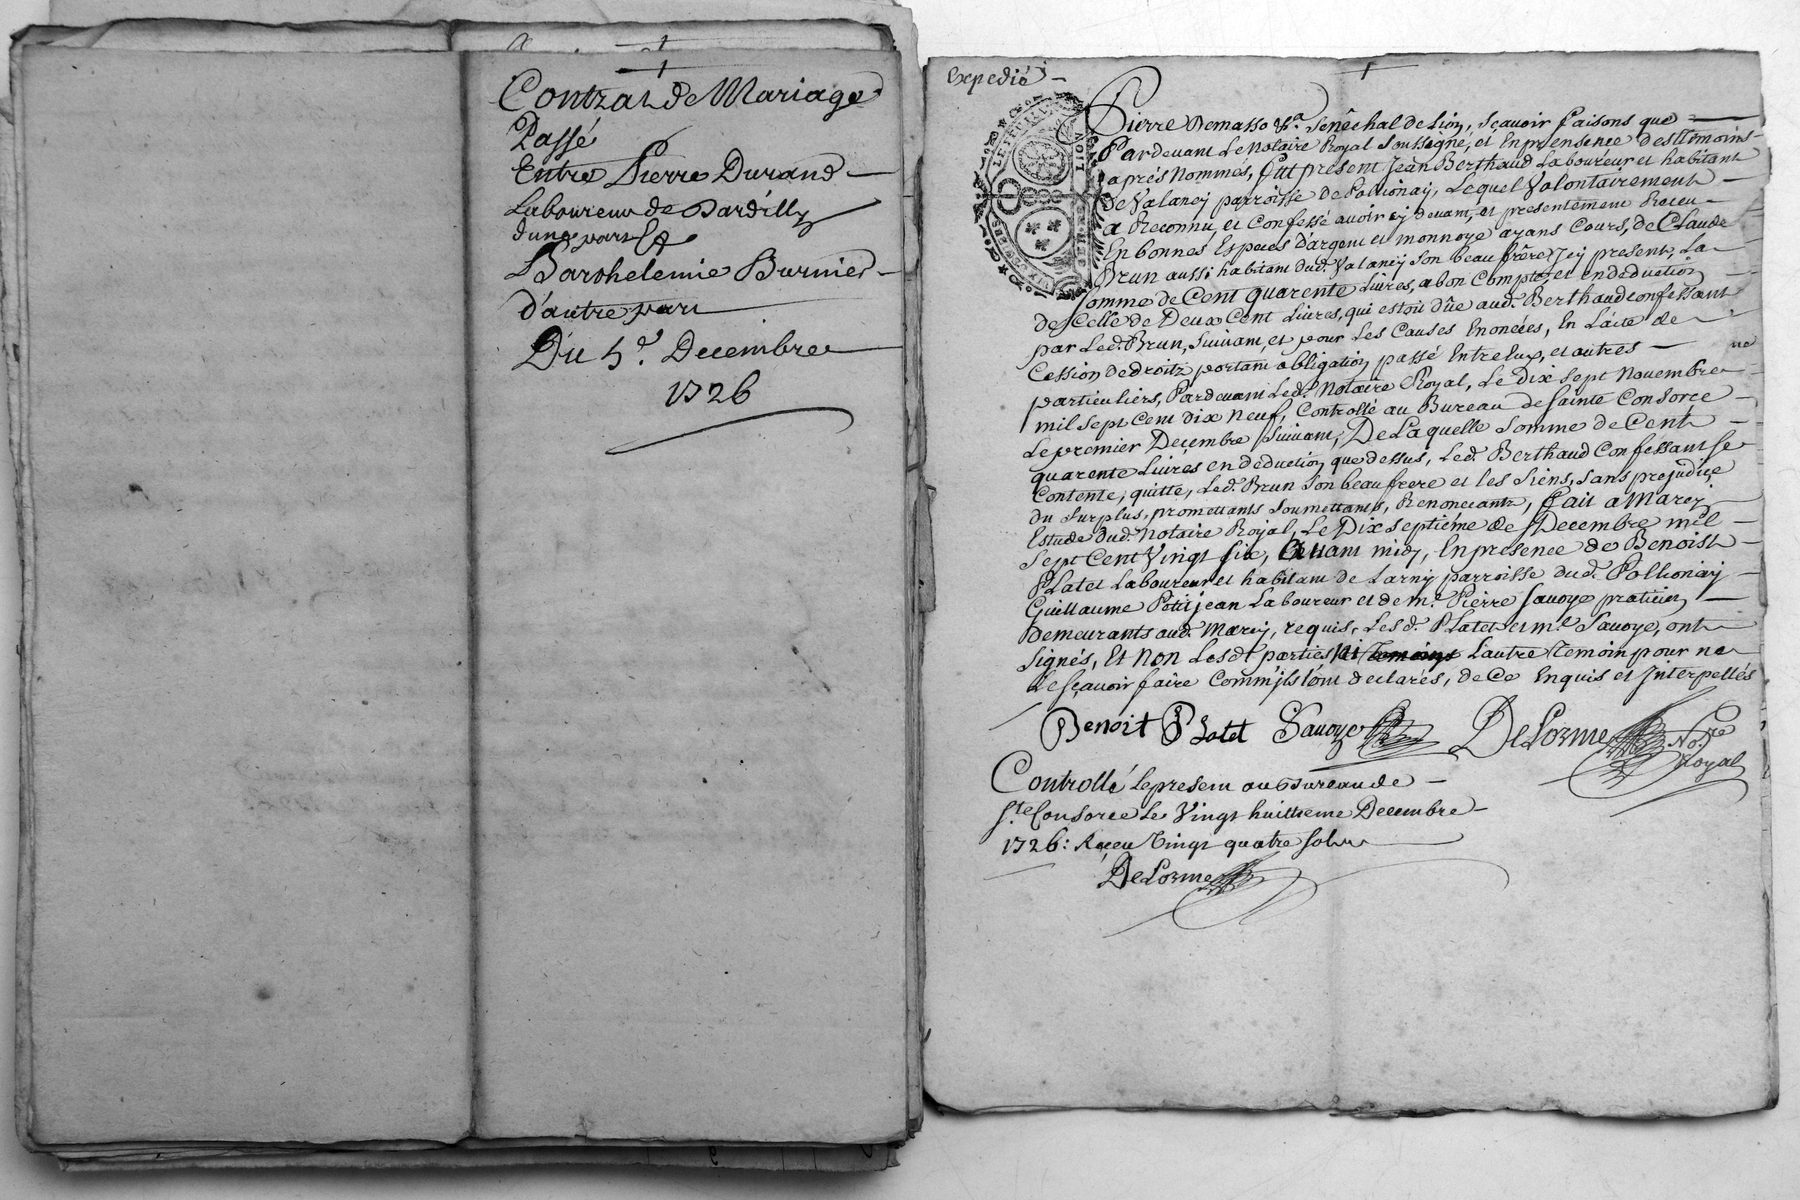 Contrat de Mariage
Passé
Entre Pierre Durand
Laboureur de Dardilly
dune part Et
Barthelemie Burnier
d'autre part
Du 5.e Decembre
1726
Expedié
Pierre Demasso &a. Senêchal de Lion, Sçavoir faisons que
Pardevant Le Notaire Royal Soussigné, et En presence des Témoins
aprés Nommés, fut présent Jean Berthaud Laboureur et habitant
de Valancy parroisse de Pollionaÿ, Lequel Volontairement
a Reconnu, et Confessé avoir cÿ devant, et presentement Receu
En bonnes Especes D'argent et monnoye aÿans Cours, de Claude
Brun aussi habitant dud. Valancÿ Son beau frêre Icÿ present, La
Somme de Cent quarente Livres, a bon Compte, et en deduction
de Celle de Deux Cent Livres, qui estoit dûe aud. Berthaud confessant
par Led. Brun, Suivant, et pour Les Causes Enoncées, En L'acte de
Cession de droits portant obligation, passé Entre Eux, et autres
particuliers, Pardevant Led. Notaire Royal, Le Dix Sept Novembre
mil Sept Cent dix neuf, Controllé au Bureau de Sainte Consorce
Le premier Decembre Suivant, De Laquelle Somme de Cent
quarente Livres en deduction que dessus, Led. Berthaud Confessant Se
Contente, quitte, Led. Brun Son beau frere et les Siens, Sans prejudice
du Surplus, promettants Soumettants, Renoncants, fait a Marcy
Estude dud. Notaire Royal, Le Dix Septiéme de Decembre mil
Sept Cent Vingt Six, avant midy, En presence de Benoist
Platet Laboureur et habitant de Larny parroisse dud. Pollionaÿ
Guillaume Petitjean Laboureur et de me. Pierre Savoye praticien
Demeurants aud. Marcy, requis, Les d. Platet et me. Savoye, ont
Signés, Et Non Lesdt. parties ni L'autre Temoin pour ne
Le Sçavoir faire Comm'ils L'ont declarés, de Ce Enquis et Interpellés
Benoit Platet Savoye DeLorme No.re
Royal
Controllé Le present au Bureau de
Ste Consorce Le Vingt huittieme Decembre
1726: Receu Vingt quatre Sols
DeLorme